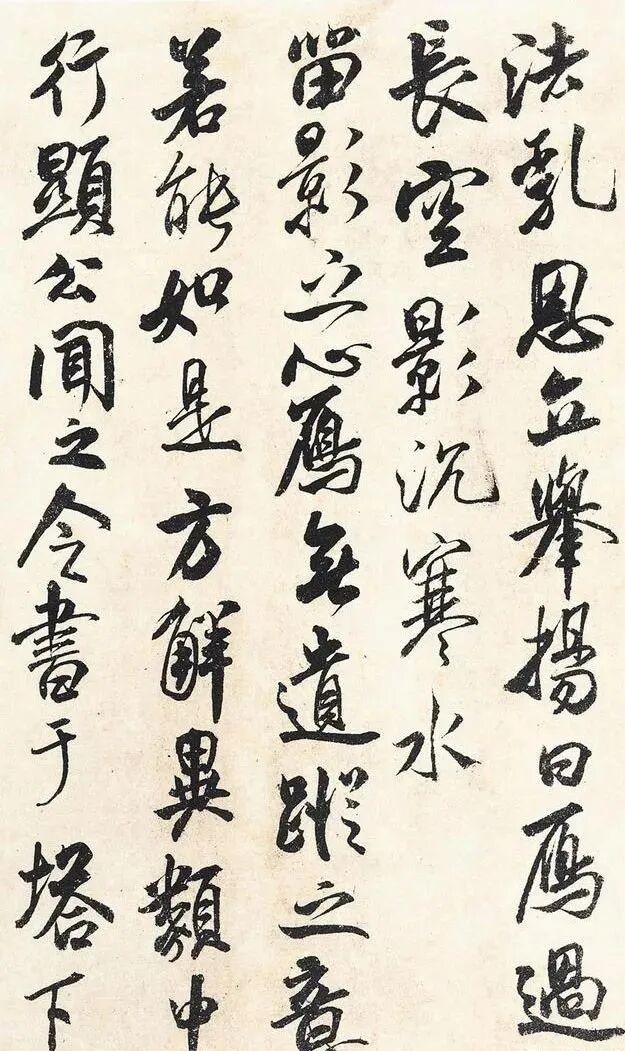 法乳恩立舉揚曰鴈過
長空影沉寒水
留影之心鴈無遺蹤之意
若能如是方解異類中
行顯公聞之令書于塔下